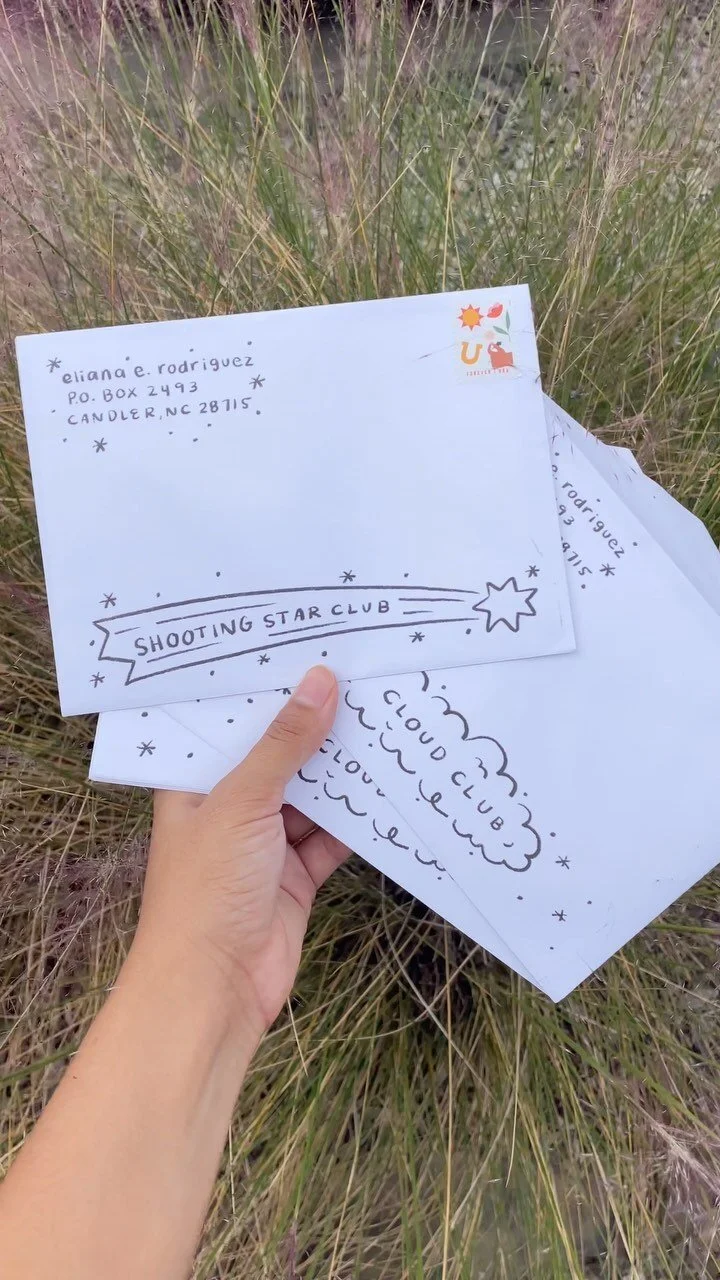 eliana e. rodriguez
P.O. BOX 2493
CANDLER, NC 28715
SHOOTING STAR CLUB
rodriguez
93
8715
CLOUD CLUB
CLOU